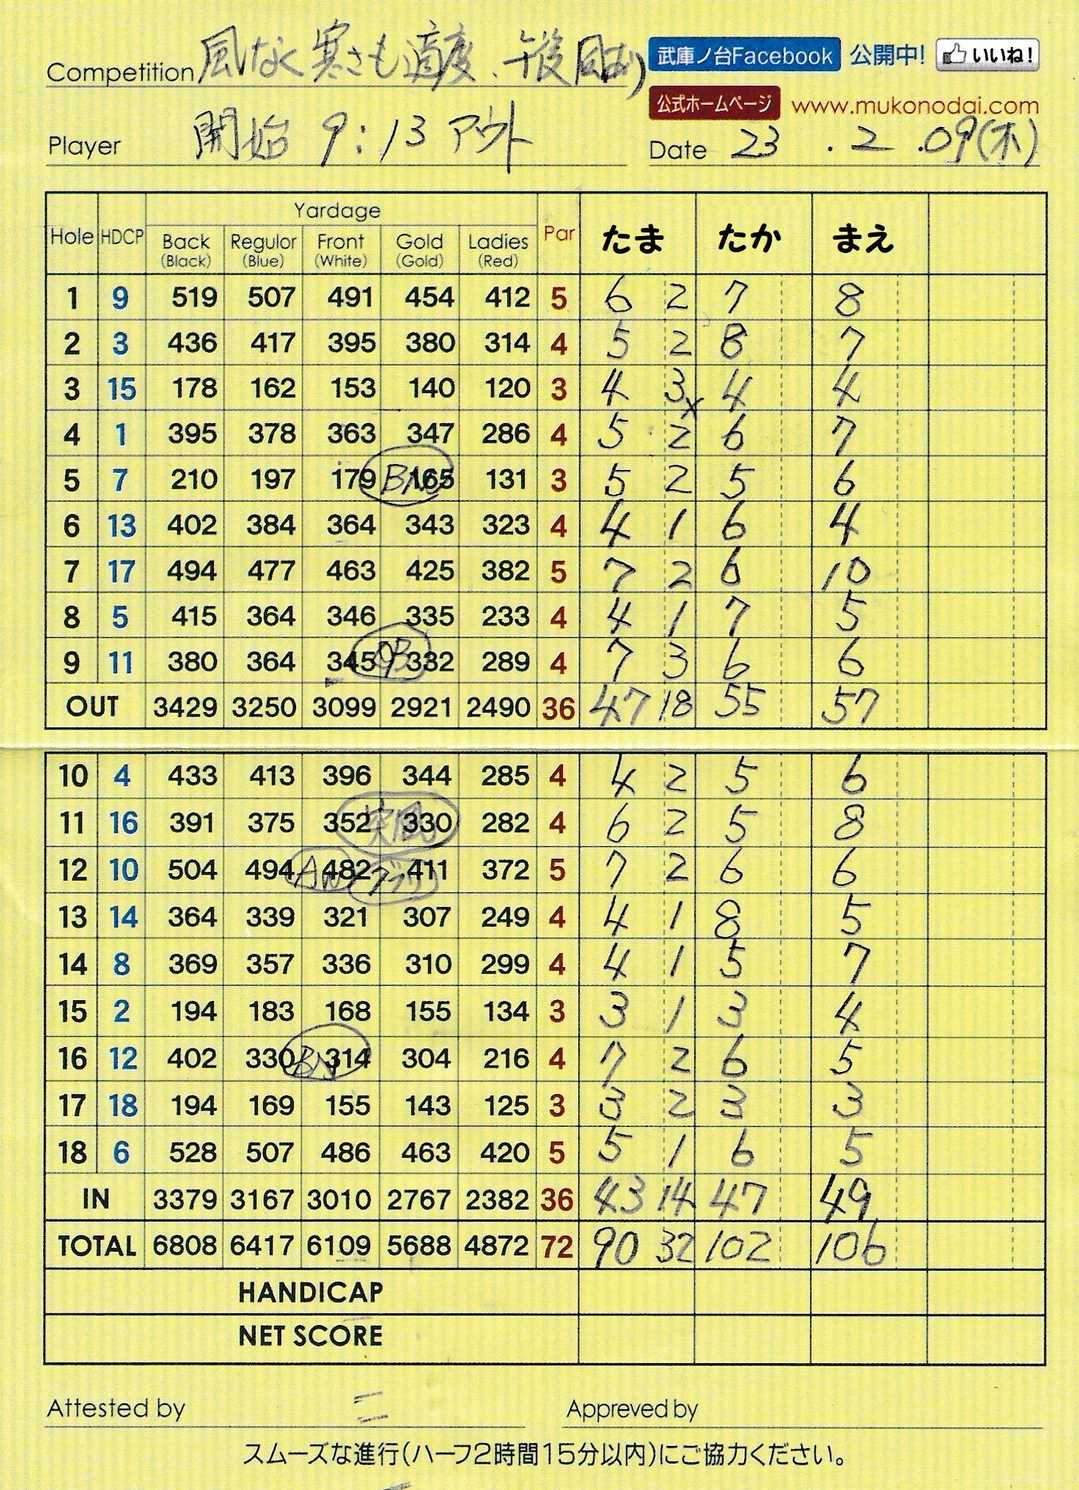 Competition 風なく寒さも適度、午後風あり 武庫ノ台Facebook 公開中! いいね!
公式ホームページ www.mukonodai.com
Player 開始 9:13 アウト Date 23 . 2 .09(木)
Yardage
Hole HDCP Back Regulor Front Gold Ladies Par たま たか まえ
(Black) (Blue) (White) (Gold) (Red)
1 9 519 507 491 454 412 5 6 2 7 8
2 3 436 417 395 380 314 4 5 2 8 7
3 15 178 162 153 140 120 3 4 3 x 4 4
4 1 395 378 363 347 286 4 5 2 6 7
5 7 210 197 179 BN 165 131 3 5 2 5 6
6 13 402 384 364 343 323 4 4 1 6 4
7 17 494 477 463 425 382 5 7 2 6 10
8 5 415 364 346 335 233 4 4 1 7 5
9 11 380 364 345 OB 332 289 4 7 3 6 6
OUT 3429 3250 3099 2921 2490 36 47 18 55 57
10 4 433 413 396 344 285 4 4 2 5 6
11 16 391 375 352 突風 330 282 4 6 2 5 8
12 10 504 494 482 ダフリ 411 372 5 7 2 6 6
13 14 364 339 321 307 249 4 4 1 8 5
14 8 369 357 336 310 299 4 4 1 5 7
15 2 194 183 168 155 134 3 3 1 3 4
16 12 402 330 BN 314 304 216 4 7 2 6 5
17 18 194 169 155 143 125 3 3 2 3 3
18 6 528 507 486 463 420 5 5 1 6 5
IN 3379 3167 3010 2767 2382 36 43 14 47 49
TOTAL 6808 6417 6109 5688 4872 72 90 32 102 106
HANDICAP
NET SCORE
Attested by Appreved by
スムーズな進行(ハーフ2時間15分以内)にご協力ください。